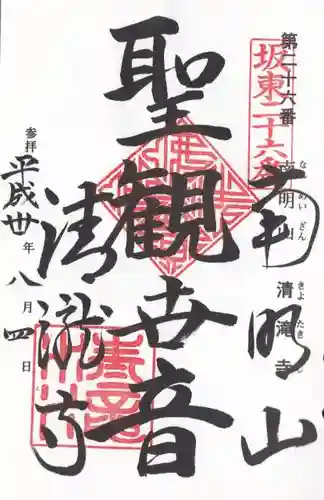 第二十六番
南明山 清滝寺
なめいざん きよたきじ
坂東二十六番
南明山
聖観世音
清瀧寺
参拝 平成廿年八月四日